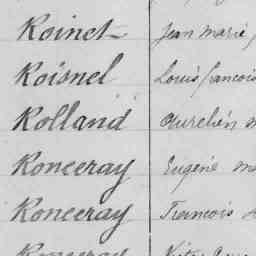 Roinet Jean Marie,
Roisnel Louis François
Rolland Aurélien M
Ronceray Eugène Ma
Ronceray François
Ronceray